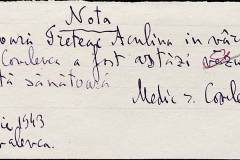 Nota
oara Treteac Aculina in vâr
Covaleva a fost astăzi
tă sănătoară
Medic s. Cova
ie 1943
valevca.